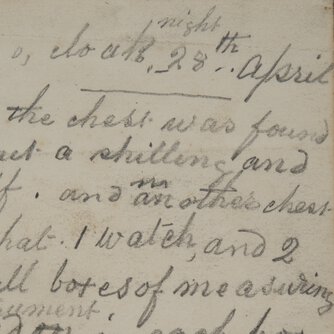 night
o, cloak, 28th. April
the chest was found
a shilling and
. and in another chest
hat. 1 watch, and 2
boxes of measuring